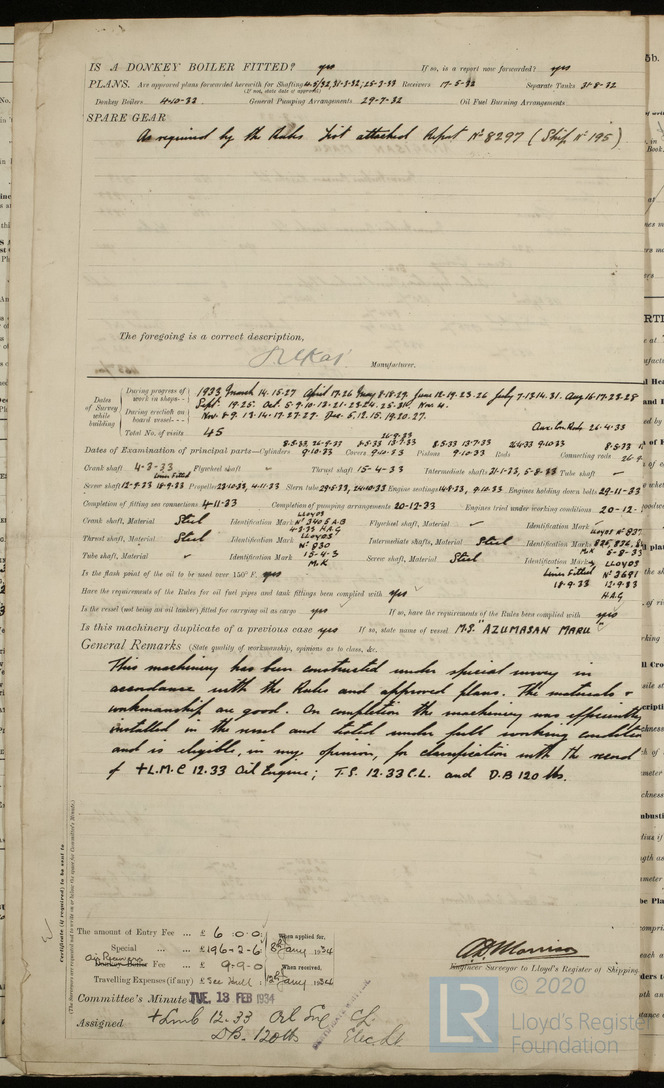 IS A DONKEY BOILER FITTED? yes If so, is a report now forwarded? yes
PLANS. Are approved plans forwarded herewith for Shafting 4-5/32, 31-3-32; 25-3-33 Receivers 17-5-32 Separate Tanks 31-8-32
(If not, state date of approval)
Donkey Boilers 4-10-32 General Pumping Arrangements 29-7-32 Oil Fuel Burning Arrangements
SPARE GEAR
As required by the Rules List attached Report No 8297 (Ship No 195)
The foregoing is a correct description,
Manufacturer.
Dates of Survey while building
During progress of work in shops-- 1933, March 14.15.27 April 17.26 May 8.18.29. June 12.19.23.26 July 7.13.14.31. Aug 16.17.23.28
Sept. 19.25. Oct. 5.9.10.13.21.23.24.25.31. Nov. 4.
During erection on board vessel--- Nov. 8.9.13.14.17.27.29. Dec. 5.12.15.19.20.27.
Total No. of visits 45 Aux. Con Rods 26.4.33
Dates of Examination of principal parts—Cylinders 8.5.33 26.9.33 9.10.33 Covers 26.9.33 8.5.33 13.7.33 9.10.33 Pistons 8.5.33 13.7.33 9.10.33 Rods 26.4.33 9.10.33 Connecting rods 8.5.33
Crank shaft 4-3-33 Flywheel shaft Thrust shaft 15-4-33 Intermediate shafts 31.1-33, 5-8-33 Tube shaft
Screw shaft 12-9-33 Liner Fitted 18.9.33 Propeller 23.10.33, 4.11.33 Stern tube 29.5.33, 24.10.33 Engine seatings 14.8.33, 9.10.33 Engines holding down bolts 29-11-33
Completion of fitting sea connections 4-11-33 Completion of pumping arrangements 20-12-33 Engines tried under working conditions 20-12-
Crank shaft, Material Steel Identification Mark LLOYDS No 3405 A-B 4-3-33 H.A.G Flywheel shaft, Material Identification Mark
Thrust shaft, Material Steel Identification Mark LLOYDS No 830 15-4-3 M.K Intermediate shafts, Material Steel Identification Marks LLOYDS No 837 5-8-33 M.K
Tube shaft, Material Identification Mark Screw shaft, Material Steel Identification Mark LLOYDS No 3691 12-9-33 H.A.G
Liner Fitted 18.9.33
Is the flash point of the oil to be used over 150° F. yes
Have the requirements of the Rules for oil fuel pipes and tank fittings been complied with yes
Is the vessel (not being an oil tanker) fitted for carrying oil as cargo yes If so, have the requirements of the Rules been complied with yes
Is this machinery duplicate of a previous case yes If so, state name of vessel M.S. "AZUMASAN MARU"
General Remarks (State quality of workmanship, opinions as to class, &c.
This machinery has been constructed under special survey in
accordance with the Rules and approved plans. The materials &
workmanship are good. On completion the machinery was efficiently
installed in the vessel and tested under full working condition
and is eligible, in my opinion, for classification with the record
of + L.M.C 12.33 Oil Engine; T.S. 12.33 C.L. and D.B 120 lbs.
The amount of Entry Fee ... £ 6 : 0 : 0 When applied for,
Special ... ... £ 196-2-6 8th Jany 1934
Donkey Boiler Fee ... £ 9-9-0 When received,
Travelling Expenses (if any) £ 1934
Engineer Surveyor to Lloyd's Register of Shipping
Committee's Minute TUE. 13 FEB 1934
Assigned + Lmb 12.33 Oil Eng CL
D.B. 120 lbs Elec. Lt
Certificate (if required) to be sent to
(The Surveyors are requested not to write on or below the space for Committee's Minute.)
LR © 2020
Lloyd's Register
Foundation